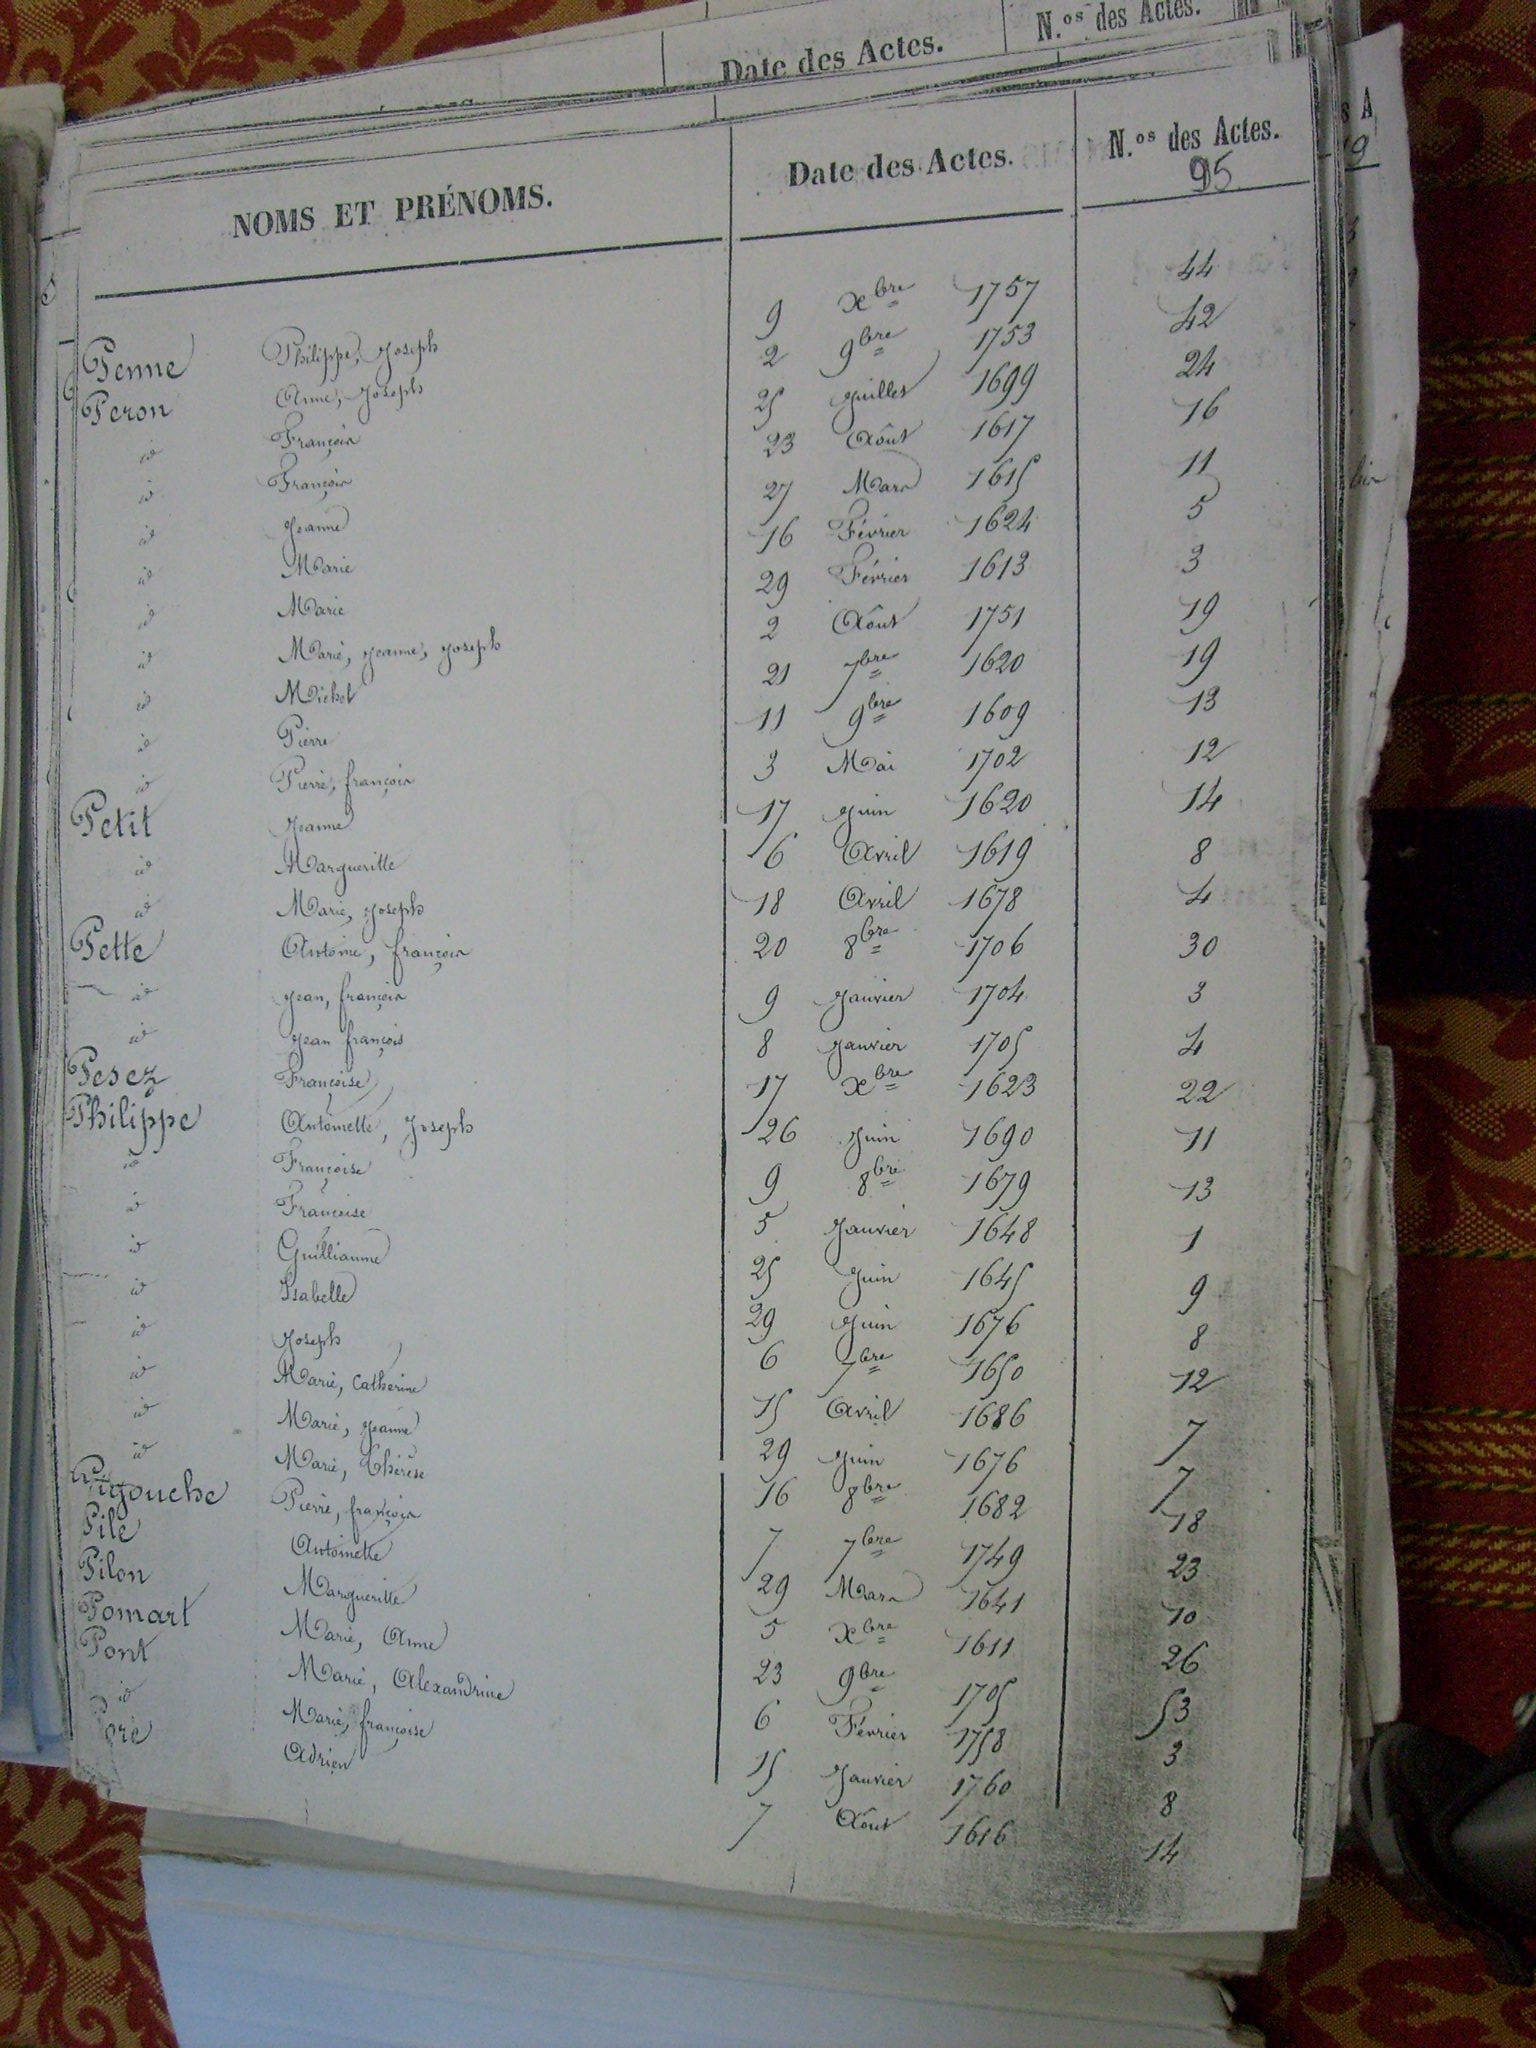 Date des Actes. N.os des Actes.
NOMS ET PRÉNOMS. Date des Actes. N.os des Actes.
95
Penne Philippe, Joseph 9 xbre 1757 44
Peron Anne, Joseph 2 9bre 1753 42
id François 25 Juillet 1699 24
id François 23 Août 1617 16
id Jeanne 27 Mars 1615 11
id Marie 16 Février 1624 5
id Marie 29 Février 1613 3
id Marie, Jeanne, Joseph 2 Août 1751 19
id Michel 21 7bre 1620 19
id Pierre 11 9bre 1609 13
id Pierre, françois 3 Mai 1702 12
Petit Jeanne 17 Juin 1620 14
id Margueritte 6 Avril 1619 8
id Marie, Joseph 18 Avril 1678 4
Pette Antoine, françois 20 8bre 1706 30
id Jean, françois 9 Janvier 1704 3
id Jean françois 8 Janvier 1705 4
Pesez Françoise 17 xbre 1623 22
Philippe Antoinette, Joseph 26 Juin 1690 11
id Françoise 9 8bre 1679 13
id Françoise 5 Janvier 1648 1
id Guilliaume 25 Juin 1645 9
id Isabelle 29 Juin 1676 8
id Joseph 6 7bre 1650 12
id Marie, Catherine 15 Avril 1686 7
id Marie, Jeanne 29 Juin 1676 7
id Marie, Thérèse 16 8bre 1682 18
Pigouche Pierre, françois 7 7bre 1749 23
Pile Antoinette 29 Mars 1641 10
Pilon Margueritte 5 xbre 1611 26
Pomart Marie, Anne 23 9bre 1705 53
Pont Marie, Alexandrine 6 Février 1758 3
id Marie, françoise 15 Janvier 1760 8
Poré Adrien 7 Août 1616 14